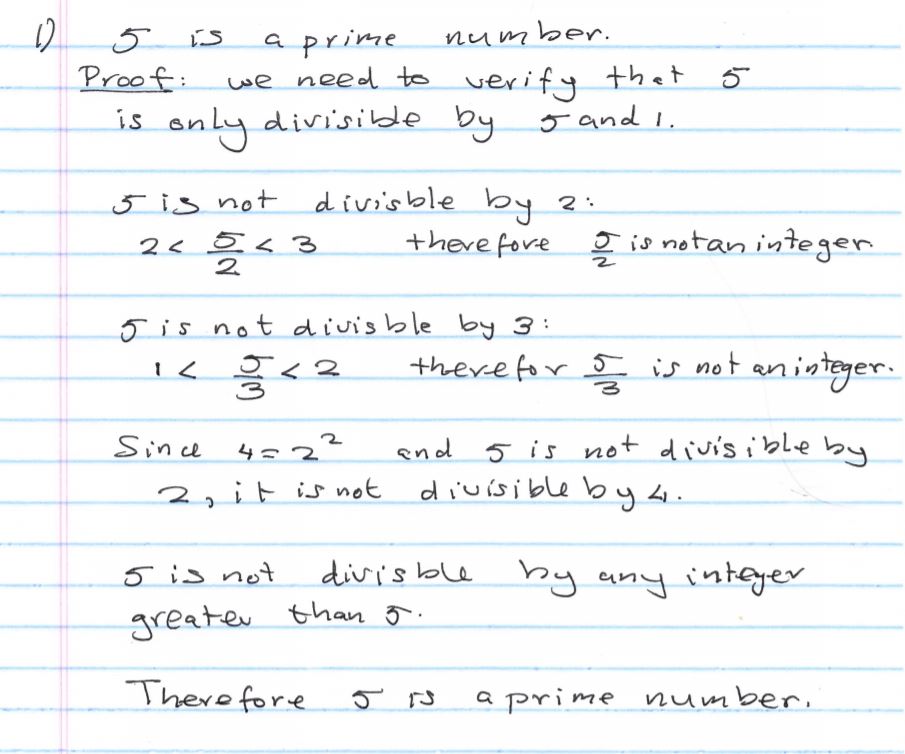 1) 5 is a prime number.
Proof: we need to verify that 5
is only divisible by 5 and 1.
5 is not divisble by 2:
2 < 5/2 < 3 therefore 5/2 is not an integer.
5 is not divisble by 3:
1 < 5/3 < 2 therefor 5/3 is not an integer.
Since 4 = 2² and 5 is not divisible by
2, it is not divisible by 4.
5 is not divisble by any integer
greater than 5.
Therefore 5 is a prime number.